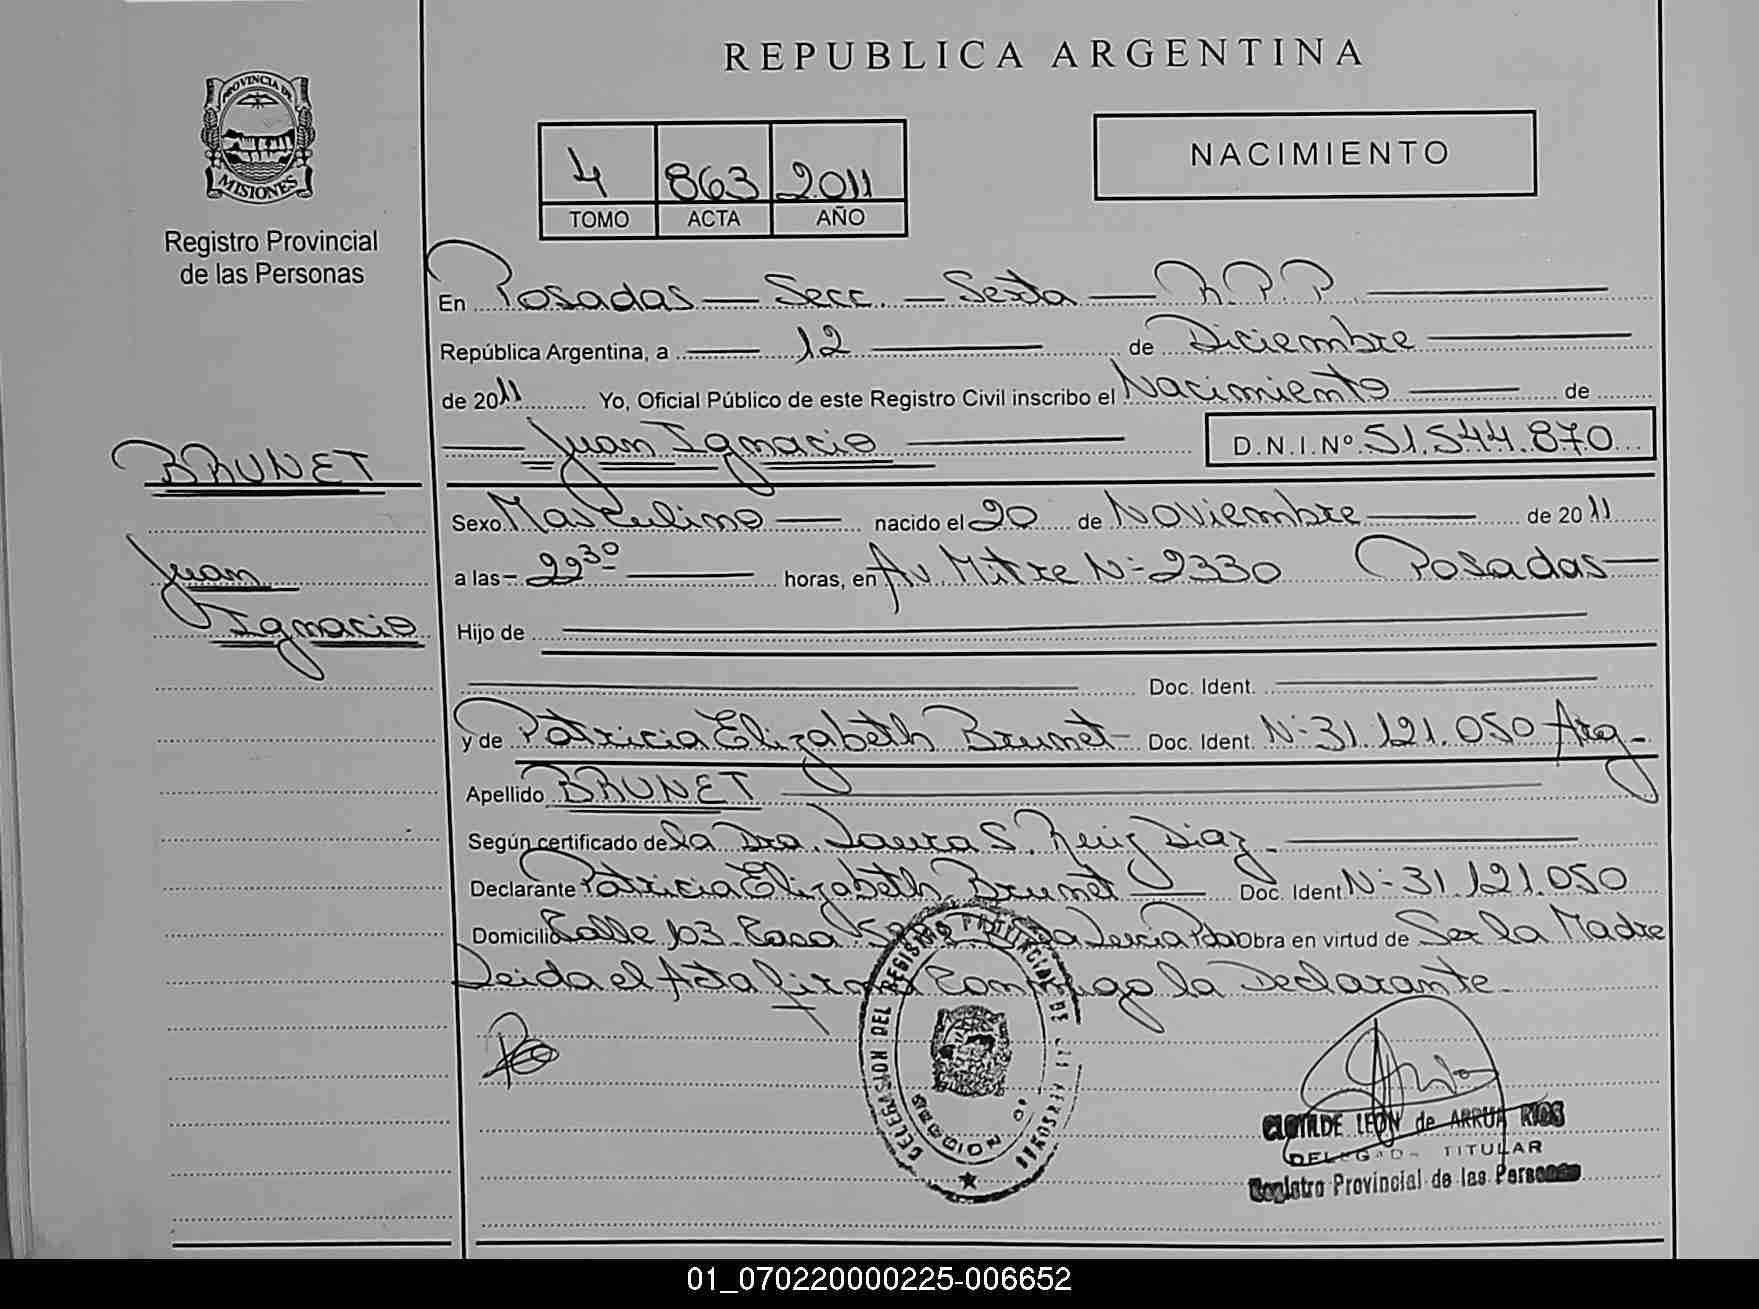 REPUBLICA ARGENTINA
PROVINCIA DE
MISIONES
Registro Provincial
de las Personas
4 863 2011
TOMO ACTA AÑO
NACIMIENTO
En Posadas — Secc. — Sexta — R.P.P.
República Argentina, a — 12 — de Diciembre —
de 2011 Yo, Oficial Público de este Registro Civil inscribo el Nacimiento — de
— Juan Ignacio — D.N.I.Nº 51.544.870
BRUNET
Juan
Ignacio
Sexo Masculino — nacido el 20 de Noviembre — de 2011
a las – 22³⁰ — horas, en Av. Mitre Nº 2330 Posadas —
Hijo de —
— Doc. Ident. —
y de Patricia Elizabeth Brunet – Doc. Ident. Nº 31.121.050 Arg.
Apellido BRUNET —
Según certificado de la Dra. Laura S. Ruiz Diaz. —
Declarante Patricia Elizabeth Brunet — Doc. Ident Nº 31.121.050
Domicilio Calle 103 Casa Lucia Pdas Obra en virtud de Ser la Madre
Leida el Acta firma Conmigo la Declarante.
DELEGACION DEL REGISTRO PROVINCIAL DE LAS PERSONAS
SECCION 6ª
CLOTILDE LEON de ARRUA RIOS
DELEGADA TITULAR
Registro Provincial de las Personas
01_070220000225-006652